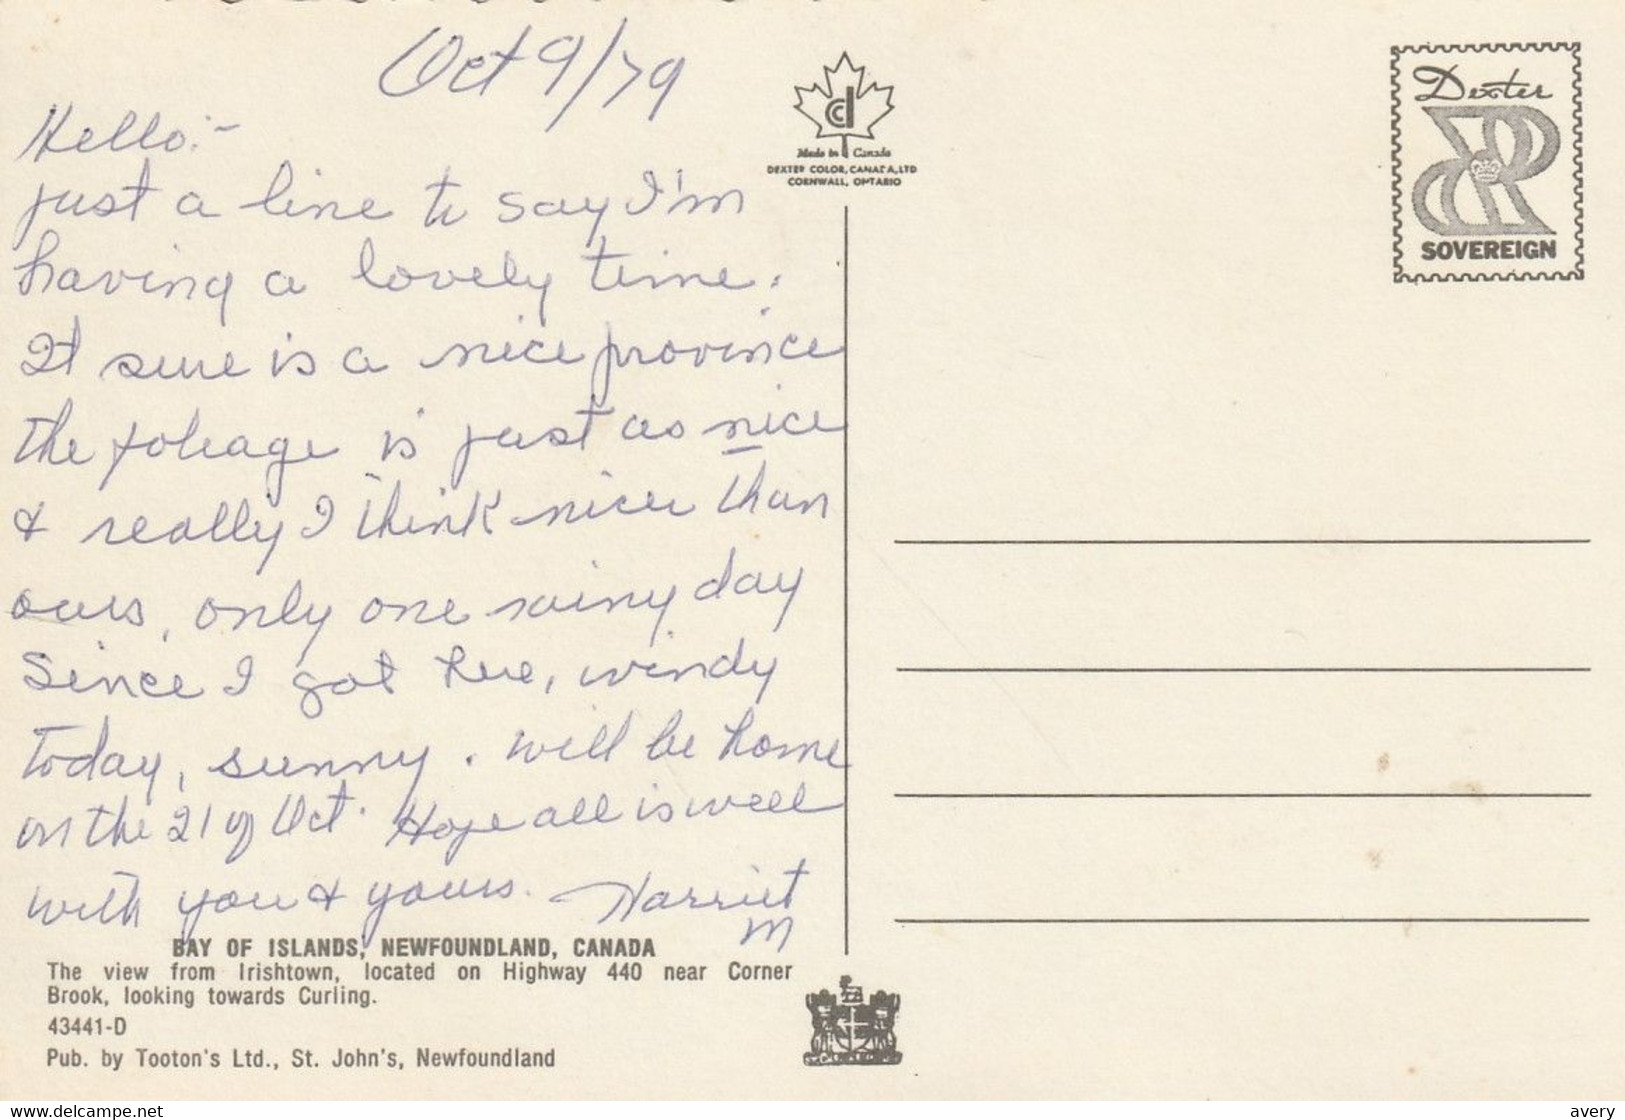 Oct 9/79
Hello:-
just a line to say I'm
having a lovely time.
It sure is a nice province
the foleage is just as nice
& really I think nicer than
ours, only one rainy day
Since I got here, windy
today, sunny. will be home
on the 21 of Oct. Hope all is well
with you & yours. Harriet
M
BAY OF ISLANDS, NEWFOUNDLAND, CANADA
The view from Irishtown, located on Highway 440 near Corner
Brook, looking towards Curling.
43441-D
Pub. by Tooton's Ltd., St. John's, Newfoundland
Made in Canada
DEXTER COLOR, CANADA, LTD
CORNWALL, ONTARIO
Dexter
SOVEREIGN
delcampe.net
avery